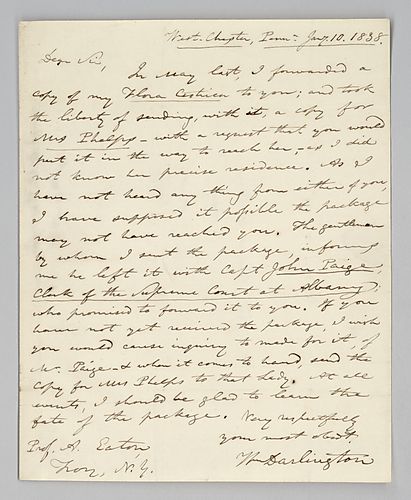 West-Chester, Penna. Jany. 10. 1838.
Dear Sir,
In May last, I forwarded a
copy of my Flora Cestrica to you; and took
the liberty of sending, with it, a copy for
Mrs Phelps - with a request that you would
put it in the way to reach her, - as I did
not know her precise residence. As I
have not heard any thing from either of you,
I have supposed it possible the package
may not have reached you. The gentleman
by whom I sent the package, informs
me he left it with Capt John Paige,
Clerk of the Supreme Court at Albany;
who promised to forward it to you. If you
have not yet received the package, I wish
you would cause inquiry to made for it, of
Mr. Paige - & when it comes to hand, send the
copy for Mrs Phelps to that lady. At all
events, I should be glad to learn the
fate of the package. Very respectfully
your most obdt.
Wm Darlington
Prof. A. Eaton
Troy, N. Y.